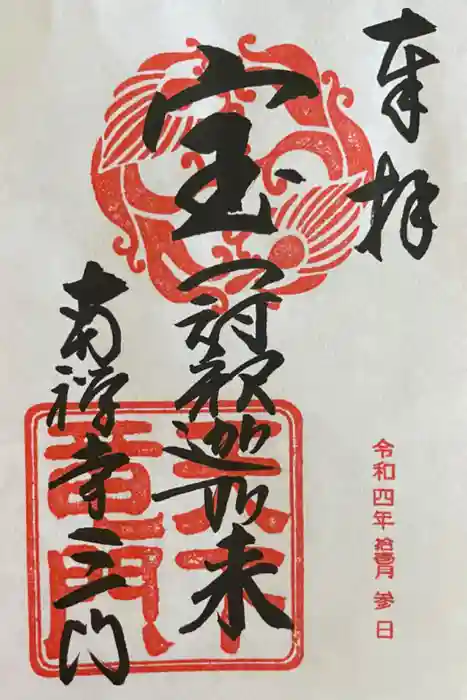 奉拝
令和四年 拾壹月 参日
宝冠釈迦如来
南禅寺三門
天下
竜門